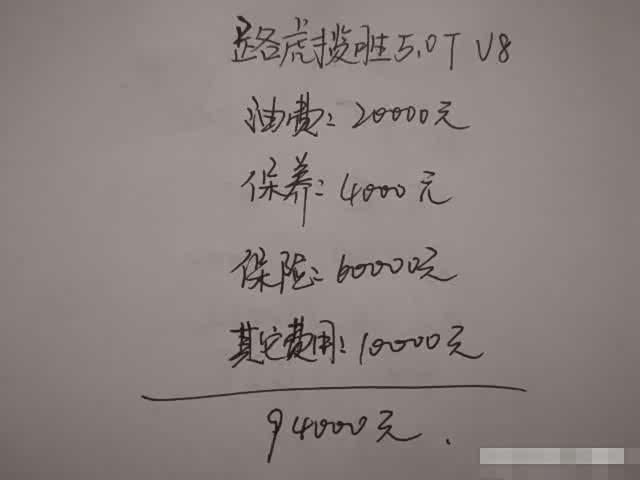 路虎揽胜5.0T V8
油费:20000元
保养:4000元
保险:60000元
其它费用:10000元
94000元.